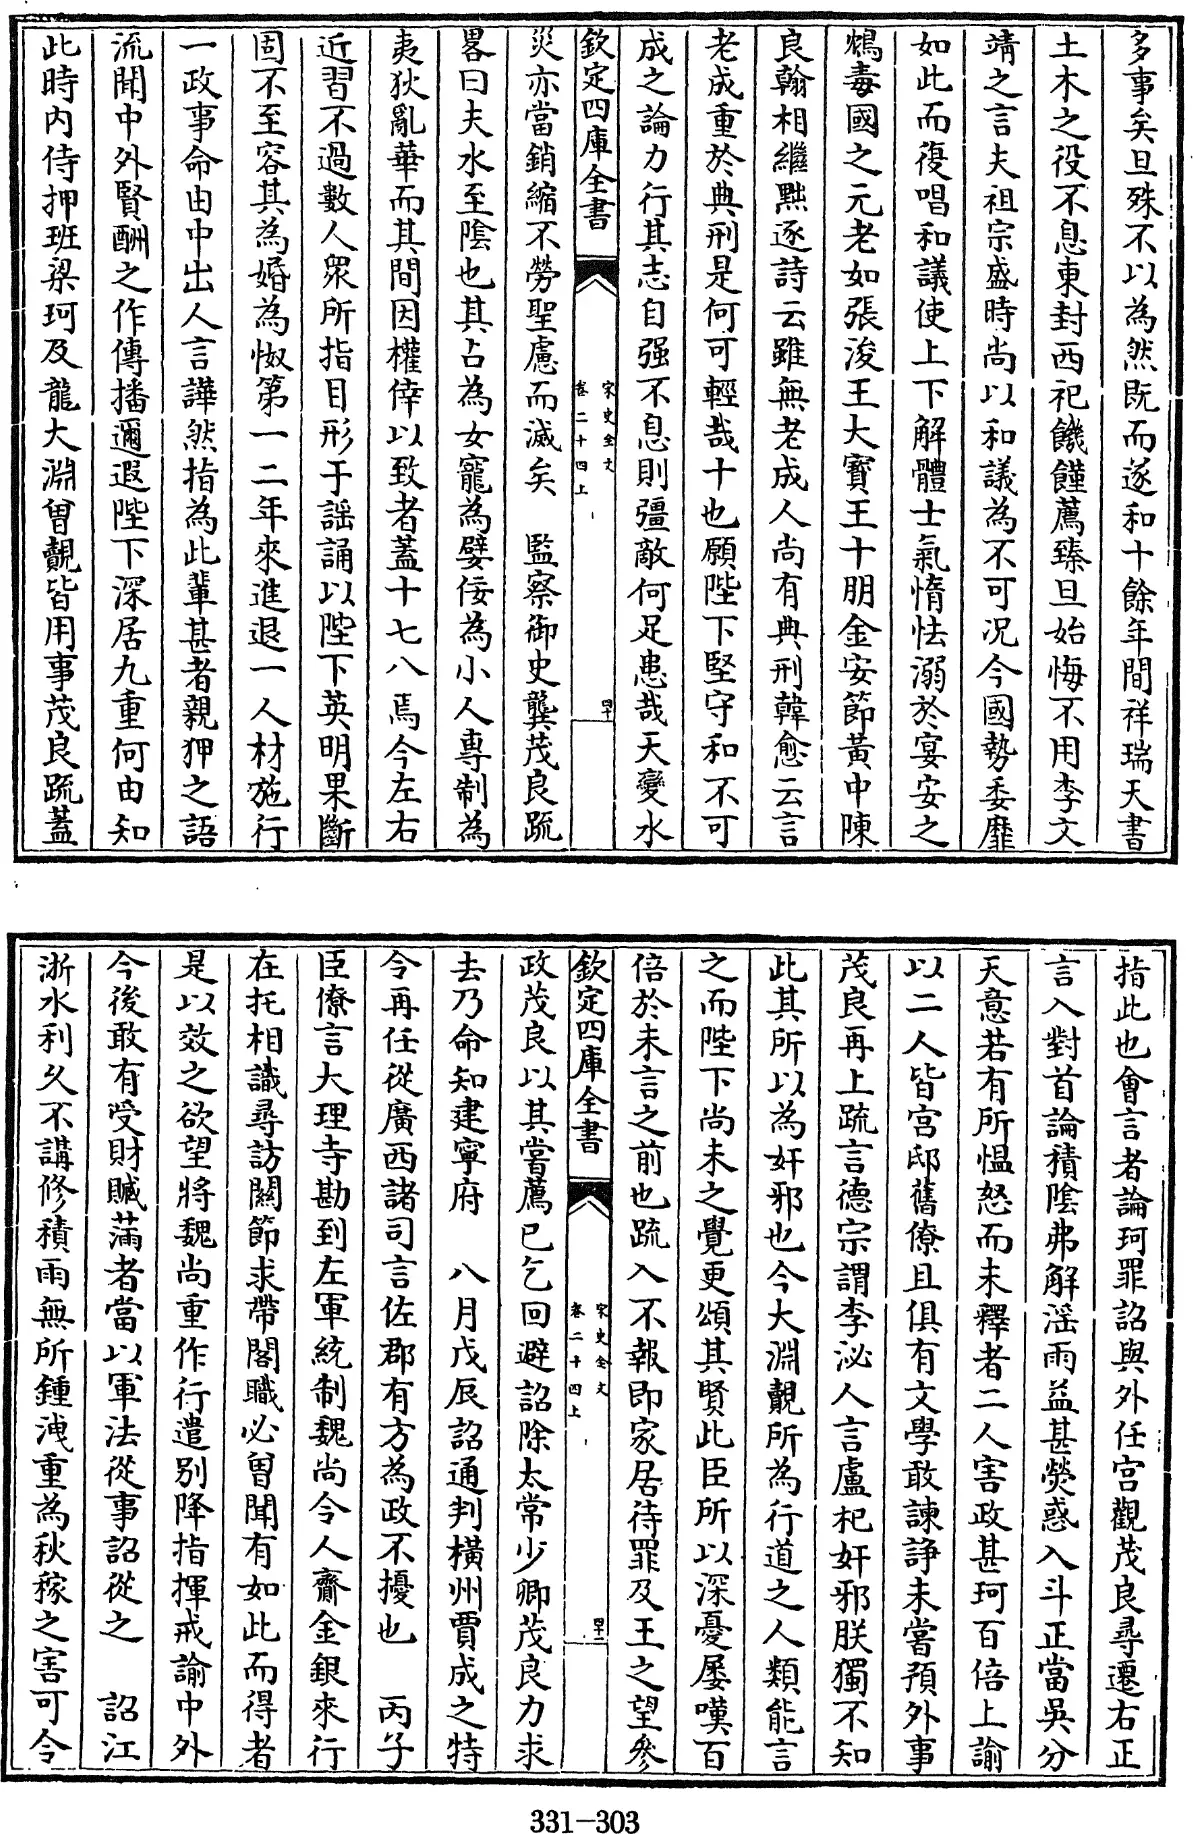 多事矣旦殊不以為然既而遂和十餘年間祥瑞天書
土木之役不息東封西祀饑饉薦臻旦始悔不用李文
靖之言夫祖宗盛時尚以和議為不可况今國勢委靡
如此而復唱和議使上下解體士氣惰怯溺於宴安之
鴆毒國之元老如張浚王大寳王十朋金安節黃中陳
良翰相繼黜逐詩云雖無老成人尚有典刑韓愈云言
老成重於典刑是何可輕哉十也願陛下堅守和不可
成之論力行其志自强不息則彊敵何足患哉天變水
欽定四庫全書
宋史全文
卷二十四上
四十
災亦當銷縮不勞聖慮而滅矣　監察御史龔茂良疏
畧曰夫水至隂也其占為女寵為嬖佞為小人專制為
夷狄亂華而其間因權倖以致者蓋十七八焉今左右
近習不過數人衆所指目形于謡誦以陛下英明果斷
固不至容其為婚為惄第一二年來進退一人材施行
一政事命由中出人言譁然指為此輩甚者親狎之語
流聞中外賢酬之作傳播邇遐陛下深居九重何由知
此時内侍押班梁珂及龍大淵曾覿皆用事茂良疏蓋
指此也會言者論珂罪詔與外任宫觀茂良尋遷右正
言入對首論積隂弗解滛雨益甚熒惑入斗正當吳分
天意若有所愠怒而未釋者二人害政甚珂百倍上諭
以二人皆宫邸舊僚且俱有文學敢諫諍未嘗預外事
茂良再上疏言德宗謂李泌人言盧杞奸邪朕獨不知
此其所以為奸邪也今大淵覿所為行道之人類能言
之而陛下尚未之覺更頌其賢此臣所以深憂屡嘆百
倍於未言之前也疏入不報即家居待罪及王之望參
欽定四庫全書
宋史全文
卷二十四上
四十二
政茂良以其嘗薦已乞回避詔除太常少卿茂良力求
去乃命知建寧府　八月戊辰詔通判橫州賈成之特
令再任從廣西諸司言佐郡有方為政不擾也　丙子
臣僚言大理寺勘到左軍統制魏尚令人齎金銀來行
在托相識尋訪關節求帶閤職必曾聞有如此而得者
是以效之欲望將魏尚重作行遣别降指揮戒諭中外
今後敢有受財贓滿者當以軍法從事詔從之　詔江
浙水利久不講修積雨無所鍾洩重為秋稼之害可令
331-303